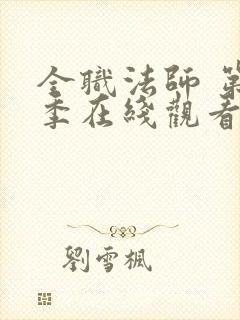 全職法師 第
季在綫觀看
劉雪楓